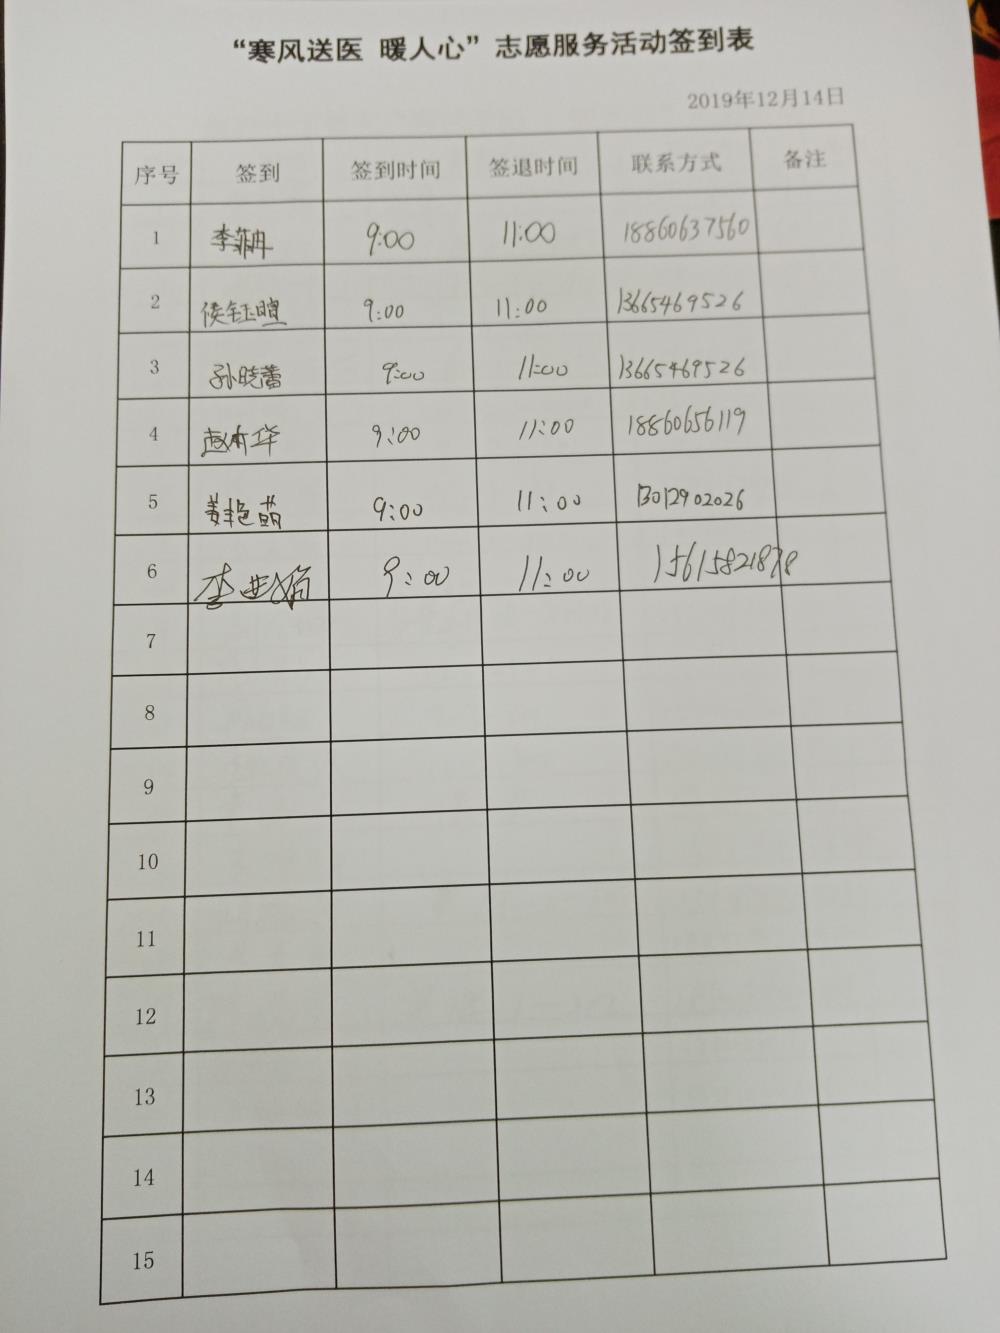 “寒风送医 暖人心”志愿服务活动签到表
2019年12月14日
序号 签到 签到时间 签退时间 联系方式 备注
1 李 9:00 11:00 18860637560
2 侯钰暄 9:00 11:00 13665469526
3 孙晓蕾 9:00 11:00 13665469526
4 赵 华 9:00 11:00 18860656119
5 姜艳萌 9:00 11:00 13012902026
6 李 9:00 11:00 15615821878
7
8
9
10
11
12
13
14
15